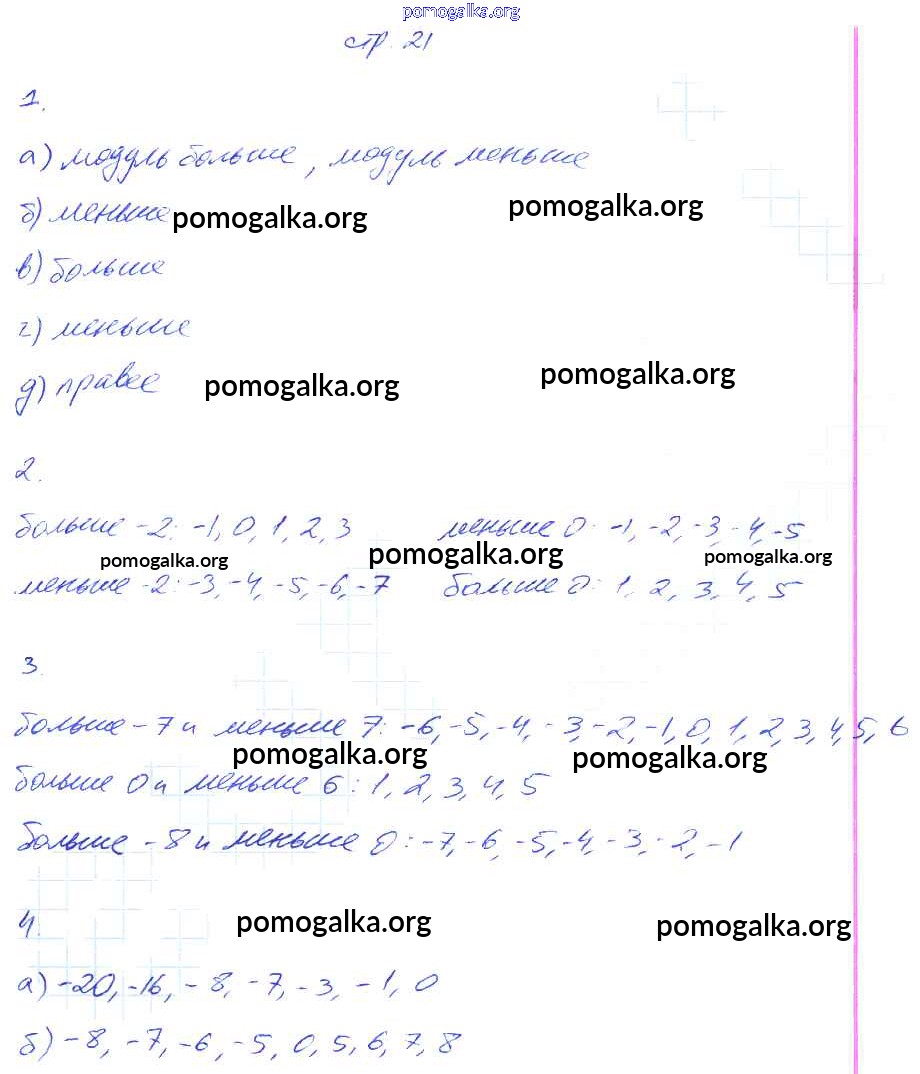 pomogalka.org
стр. 21
1.
а) модуль больше, модуль меньше
б) меньше pomogalka.org pomogalka.org
в) больше
г) меньше
д) правее pomogalka.org pomogalka.org
2.
больше -2: -1, 0, 1, 2, 3 меньше 0: -1, -2, -3, -4, -5
pomogalka.org pomogalka.org pomogalka.org
меньше -2: -3, -4, -5, -6, -7 больше 0: 1, 2, 3, 4, 5
3.
больше -7 и меньше 7: -6, -5, -4, -3, -2, -1, 0, 1, 2, 3, 4, 5, 6
pomogalka.org pomogalka.org
больше 0 и меньше 6: 1, 2, 3, 4, 5
больше -8 и меньше 0: -7, -6, -5, -4, -3, -2, -1
4. pomogalka.org pomogalka.org
а) -20, -16, -8, -7, -3, -1, 0
б) -8, -7, -6, -5, 0, 5, 6, 7, 8